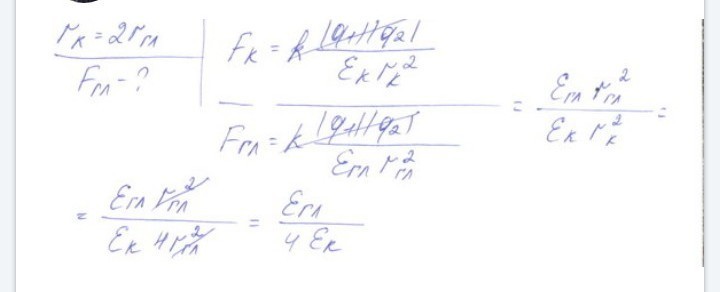 r_к = 2r_гл
F_гл - ?
F_к = k |q₁||q₂| / ε_к r_к²
F_гл = k |q₁||q₂| / ε_гл r_гл²
= ε_гл r_гл² / ε_к r_к² =
= ε_гл r_гл² / ε_к 4r_гл² = ε_гл / 4 ε_к